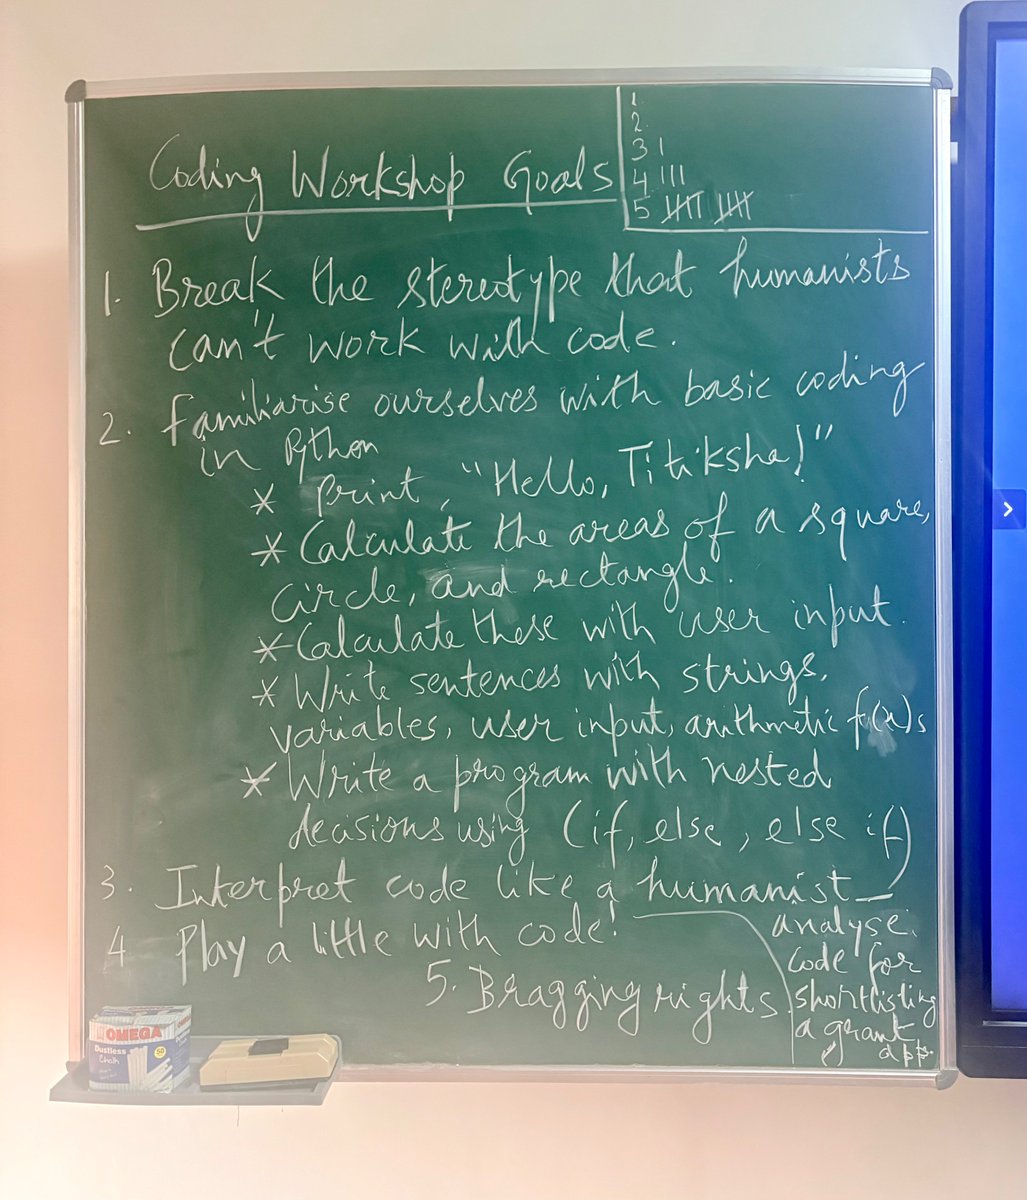 Coding Workshop Goals
1.
2.
3 |
4 |||
5 卌 卌
1. Break the stereotype that humanists
can't work with code.
2. Familiarise ourselves with basic coding
in Python
* Print, "Hello, Titiksha!"
* Calculate the areas of a square,
circle, and rectangle.
* Calculate these with user input.
* Write sentences with strings,
variables, user input, arithmetic f(x)s
* Write a program with nested
decisions using (if, else, else if)
3. Interpret code like a humanist –
analyse
code for
shortlisting
a grant
app.
4 Play a little with code!
5. Bragging rights
OMEGA
Dustless
Chalk
50